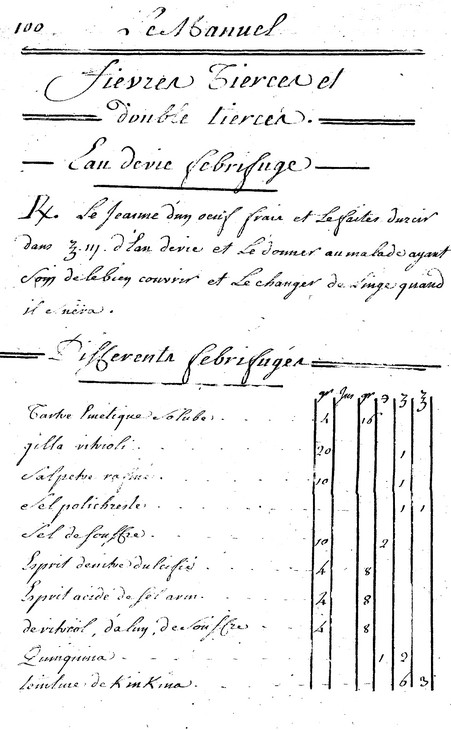 100 Le Manuel
Fievres Tierces et
double tierces.
Eau devie febrifuge
Rx. Le Jeaune d'un oeuf frais et Le faites durcir
dans ℥.iij. d'Eau devie et Le donner au malade ayant
soin de le bien couvrir et Le changer de Linge quand
il suëra.
Differents febrifuges
gr Jus gr ℈ ʒ ℥
Tartre Emetique soluble. 4 16
gilla vitrioli 20 1
Salpetre rafiné 10 1
Sel polichreste 1 1
Sel de souffre. 10 2
Esprit denitre dulcifié 4 8
Esprit acide de sel arm. 4 8
de vitriol, d'alun, de souffre 4 8
Quinquina 1 2
teinture de KinKina. 6 3